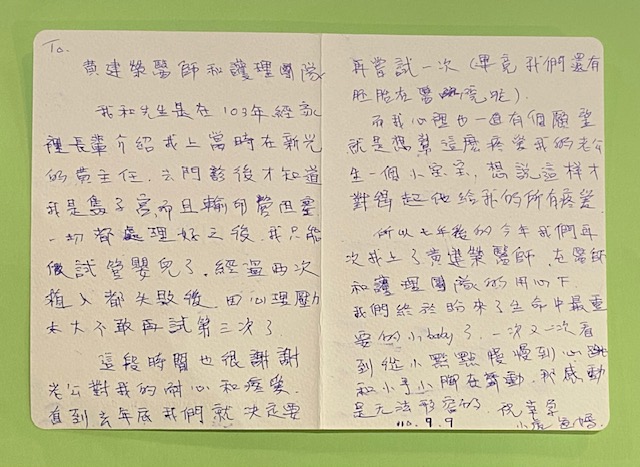 To.
黃建榮醫師和護理團隊
我和先生是在103年經家
裡長輩介紹找上當時在新光
的黃主任.去門診後才知道
我是隻子宮.而且輸卵管阻塞
一切都處理好之後.我只能
做試管嬰兒了.經過兩次
植入都失敗後 因心理壓力
太大不敢再試第三次了
這段時間也很謝謝
老公對我的耐心和疼愛
直到去年底我們就決定要
再嘗試一次(畢竟我們還有
胚胎在醫院呢).
而我心裡也一直有個願望
就是想幫這麼疼愛我的老公
生一個小寶宝,想說這樣才
對得起他給我的所有疼愛
所以七年後的今年我們再
次找上了黃建榮醫師.在醫師
和護理團隊的用心下
我們終於盼來了生命中最重
要的小baby了.一次又一次看
到從小點點慢慢到心跳
和小手小腳在擺動.那感動
是無法形容的.
110.9.9